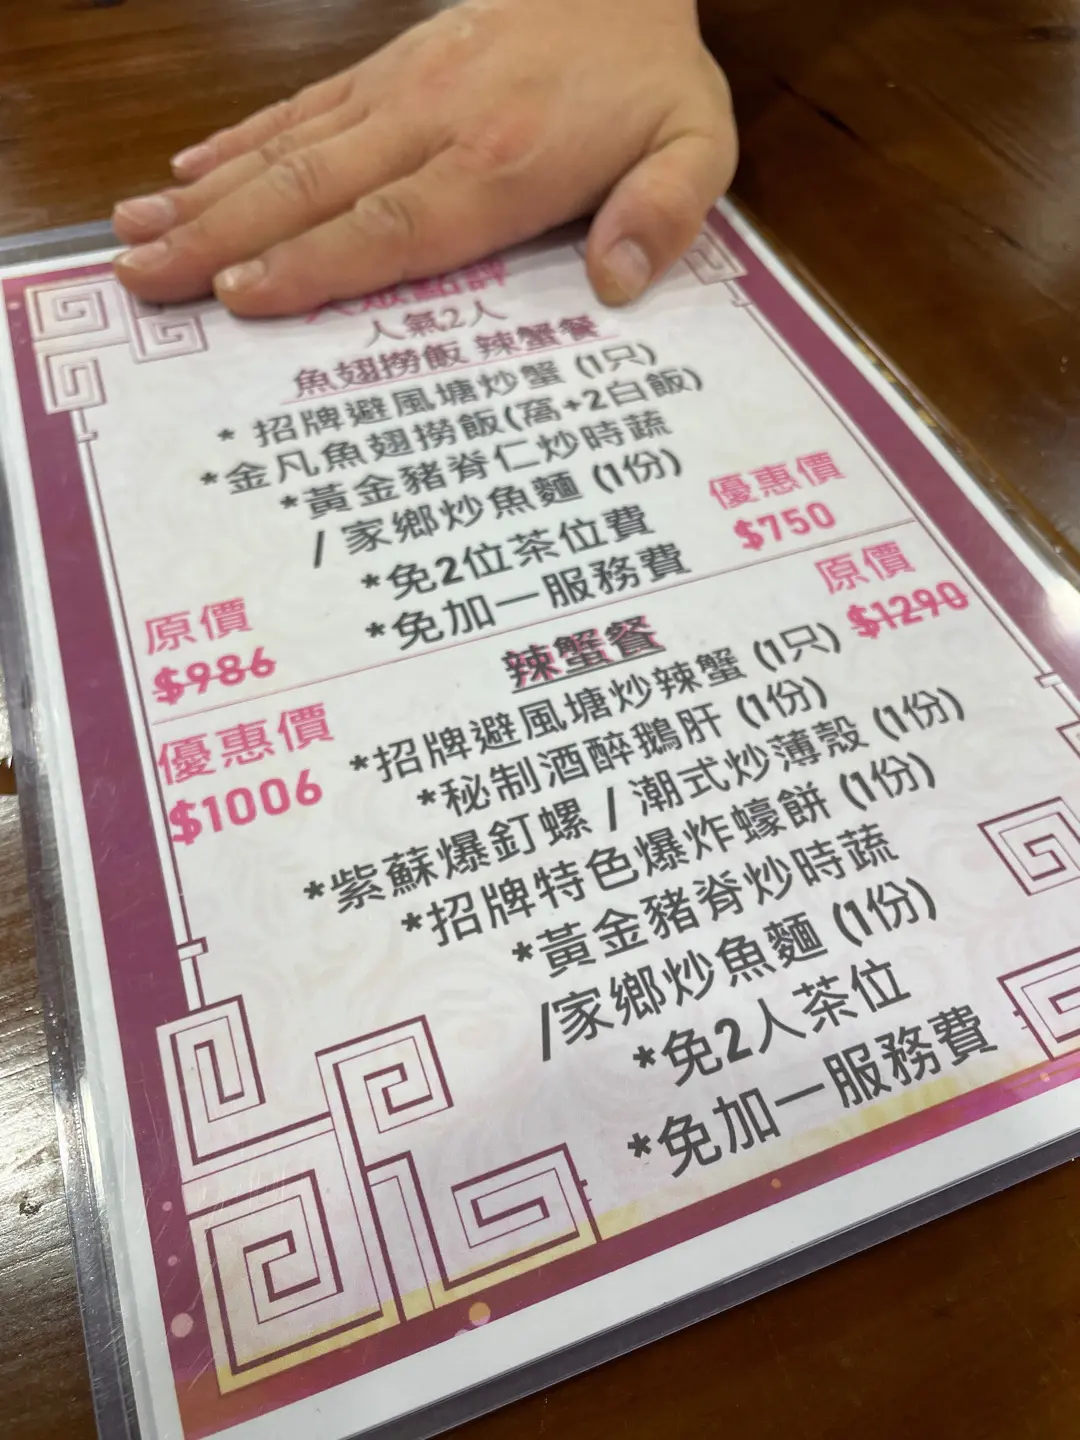 大眾點評
人氣2人
魚翅撈飯 辣蟹餐
* 招牌避風塘炒蟹 (1只)
*金凡魚翅撈飯(窩+2白飯)
*黃金豬脊仁炒時蔬
/ 家鄉炒魚麵 (1份)
*免2位茶位費
*免加一服務費
原價
$986
優惠價
$750
辣蟹餐
*招牌避風塘炒辣蟹 (1只)
*秘制酒醉鵝肝 (1份)
*紫蘇爆釘螺 / 潮式炒薄殼 (1份)
*招牌特色爆炸蠔餅 (1份)
*黃金豬脊炒時蔬
/家鄉炒魚麵 (1份)
*免2人茶位
*免加一服務費
原價
$1290
優惠價
$1006